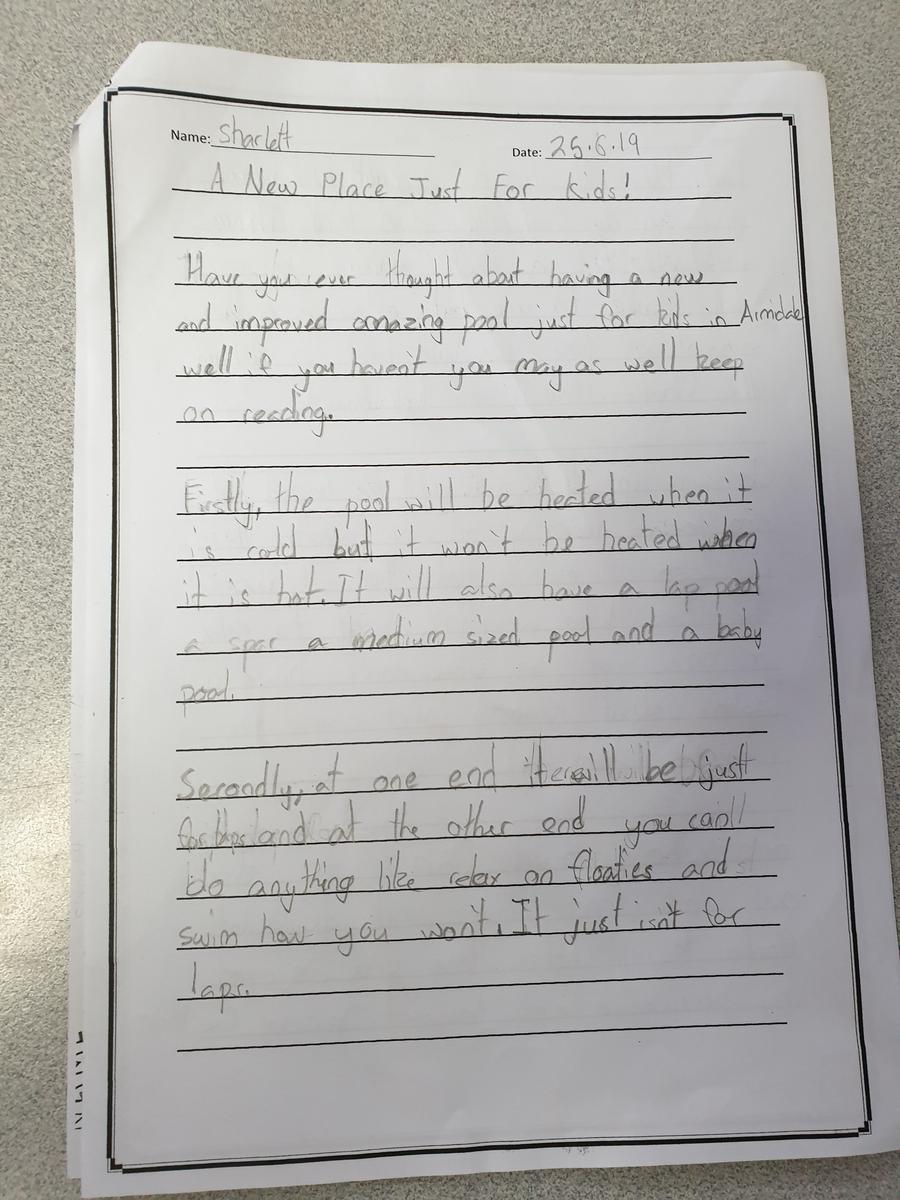 Name: Sharlett
Date: 25.6.19
A New Place Just For Kids!
Have you ever thought about having a new
and improved amazing pool just for kids in Armidale
well if you haven't you may as well keep
on reading.
Firstly, the pool will be heated when it
is cold but it won't be heated when
it is hot. It will also have a lap pool
a spar a medium sized pool and a baby
pool.
Secondly, at one end there will be just
for laps and at the other end you can
do anything like relax on floaties and
swim how you want. It just isn't for
laps.